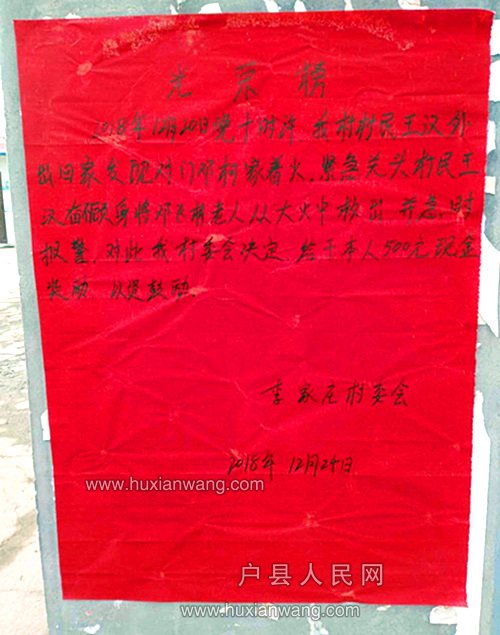 光荣榜
2018年12月20日晚十时许 我村村民王汉外
出回家发现对门邓柯家着火，紧急关头村民王
汉奋不顾身将邓 老人从大火中救出 并及时
报警，对此我村委会决定 给于本人500元现金
奖励 以资鼓励。
李家庄村委会
2018年 12月24日
www.huxianwang.com
户县人民网
www.huxianwang.com